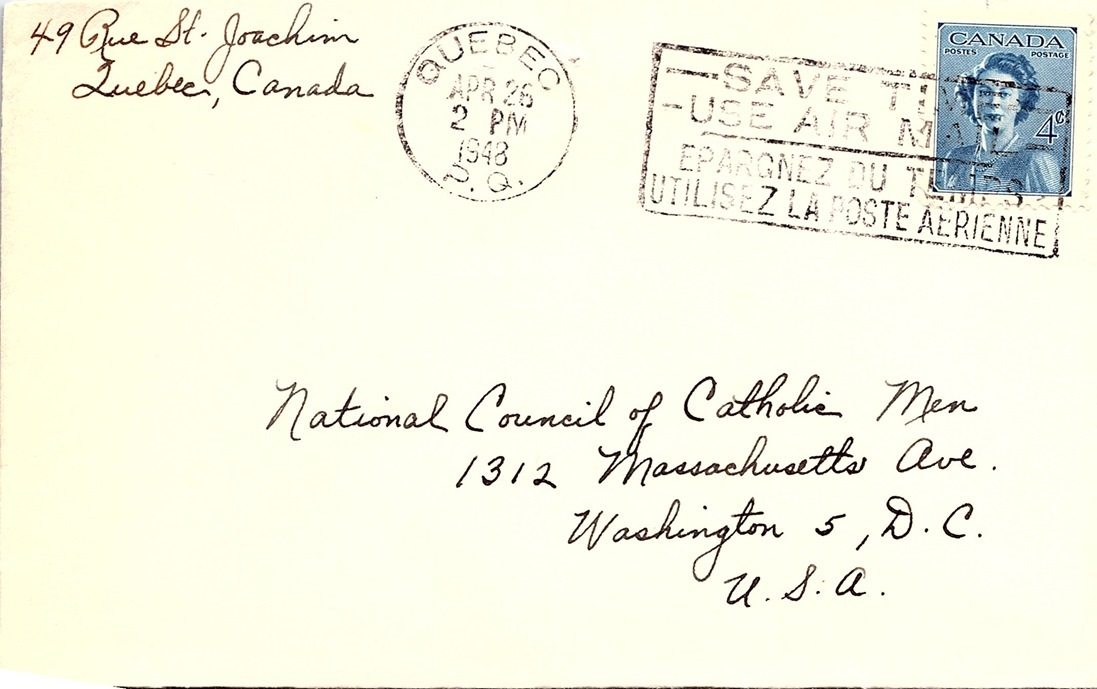 49 Rue St. Joachim
Quebec, Canada
QUEBEC
APR 26
2 PM
1948
P.Q.
SAVE TIME
USE AIR MAIL
EPARGNEZ DU TEMPS
UTILISEZ LA POSTE AERIENNE
CANADA
POSTES POSTAGE
4¢
National Council of Catholic Men
1312 Massachusetts Ave.
Washington 5, D.C.
U.S.A.